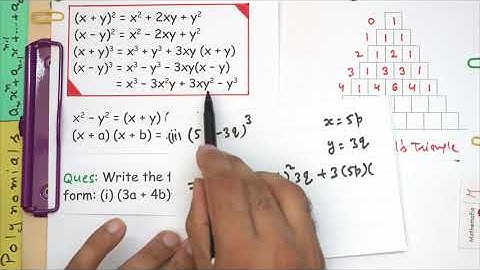 (x + y)² = x² + 2xy + y²
(x - y)² = x² - 2xy + y²
(x + y)³ = x³ + y³ + 3xy (x + y)
(x - y)³ = x³ - y³ - 3xy(x - y)
= x³ - 3x²y + 3xy² - y³
x² - y² = (x + y) (
(x + a) (x + b) =
(ii) (5 -3q)³
x = 5p
y = 3q
Ques: Write the f
form: (i) (3a + 4b)
=
)² 3q + 3(5p)(
0 1
1 1
1 2 1
1 3 3 1
1 4 6 4 1
's Triangle
Polynomials
Mathematic